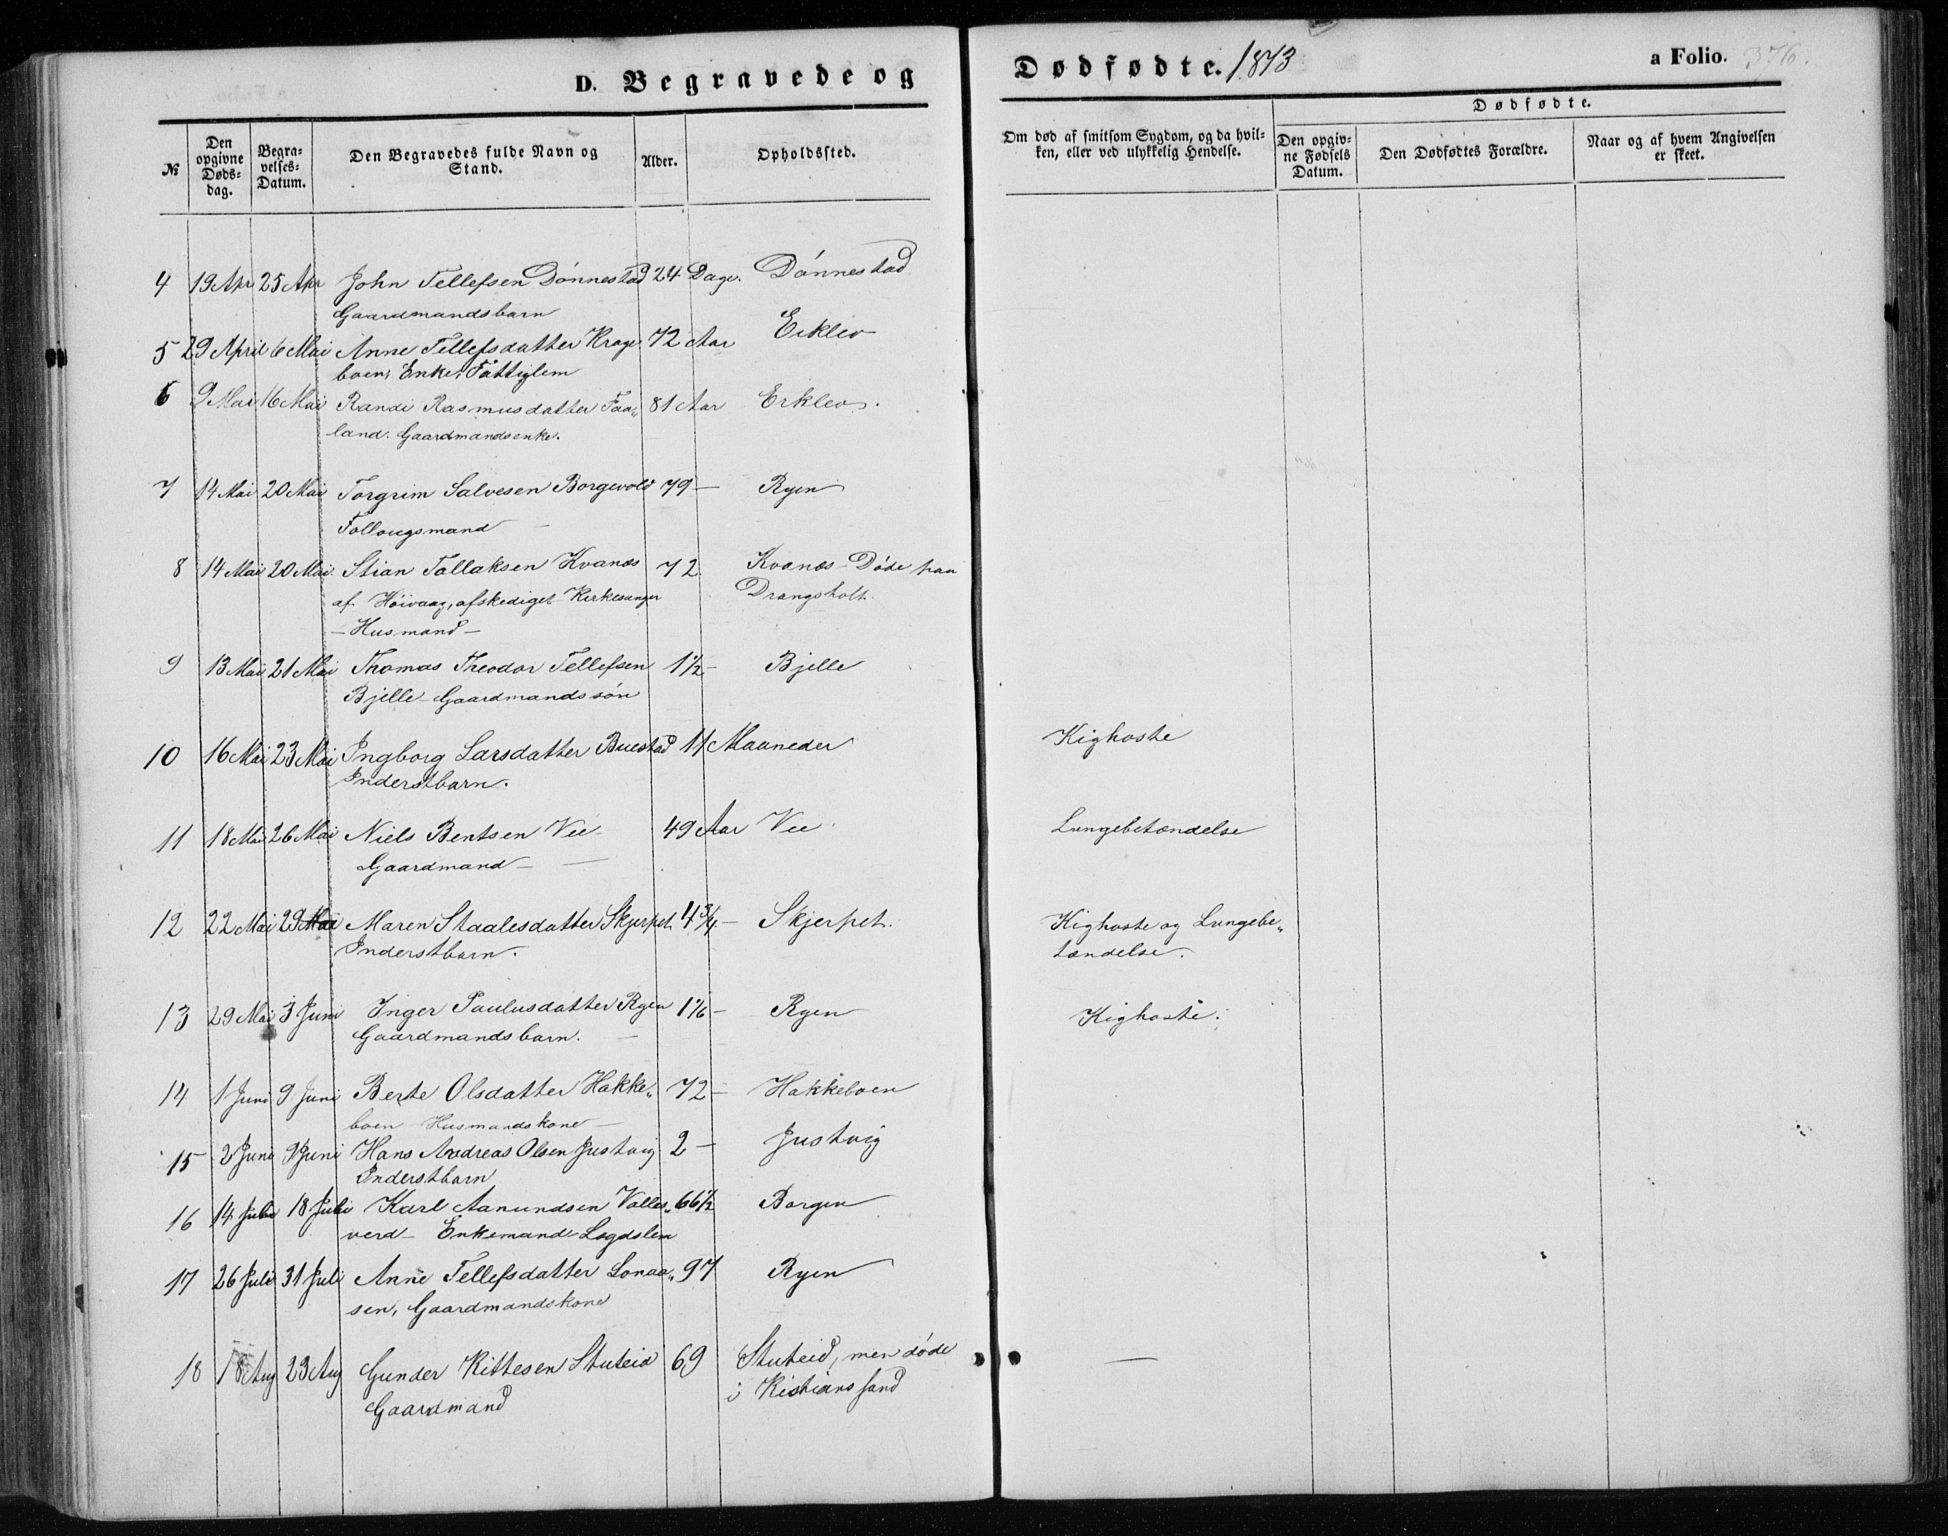 D. Begravede og Dødfødte. 1873 a Folio. 376.
№ Den opgivne Dødsdag. Begravelses-Datum. Den Begravedes fulde Navn og Stand. Alder. Opholdssted. Om død af smitsom Sygdom, og da hvilken, eller ved ulykkelig Hendelse. Dødfødte. Den opgivne Fødsels Datum. Den Dødfødtes Forældre. Naar og af hvem Angivelsen er skeet.
4 19 Apr 25 Apr John Tellefsen Dönnestad 24 Dage. Dönnestad
Gaardmandsbarn
5 29 April 6 Mai Anne Tellefsdatter Krage 72 Aar Erklev
boen, Enke, Fattiglem
6 9 Mai 16 Mai Randi Rasmusdatter Faa„ 81 Aar Erklev.
land. Gaardmandsenke.
7 14 Mai 20 Mai Torgrim Salvesen Borgevold 79 — Ryen
Follougsmand —
8 14 Mai 20 Mai Stian Tallaksen Kvanæs 72. Kvanæs - Døde paa
af Höivaag, afskediget Kirkesanger Drangsholt.
— Husmand —
9 13 Mai 21 Mai Thomas Theodor Tellefsen 1½ — Bjelle
Bjelle Gaardmandssön
10 16 Mai 23 Mai Ingborg Larsdatter Buestad 11 Maaneder Kighoste
Inderstbarn.
11 18 Mai 26 Mai Niels Bentsen Vee 49 Aar Vee. Lungebetændelse
Gaardmand —
12 22 Mai 29 Mai Maren Staalesdatter Skjerpet 4¾ — Skjerpet. Kighoste og Lungebe„
Inderstbarn. tændelse.
13 29 Mai 3 Juni Inger Paulusdatter Ryen 1⅙ — Ryen Kighoste.
Gaardmandsbarn. —
14 1 Juni 9 Juni Berte Olsdatter Hakke„ 72 — Hakkeboen
boen Husmandskone —
15 2 Juni 9 Juni Hans Andreas Olsen Justvig 2 — Justvig
Inderstbarn
16 14 Juli 18 Juli Karl Aanundsen Valles„ 66½ Borgen
verd — Enkemand Legdslem
17 26 Juli 31 Juli Anne Tellefsdatter Lonaa„ 97 Ryen
sen, Gaardmandskone
18 18 Aug 23 Aug Gunder Kittesen Stuteid 69 Stuteid, men döde —
Gaardmand i Kistianssand